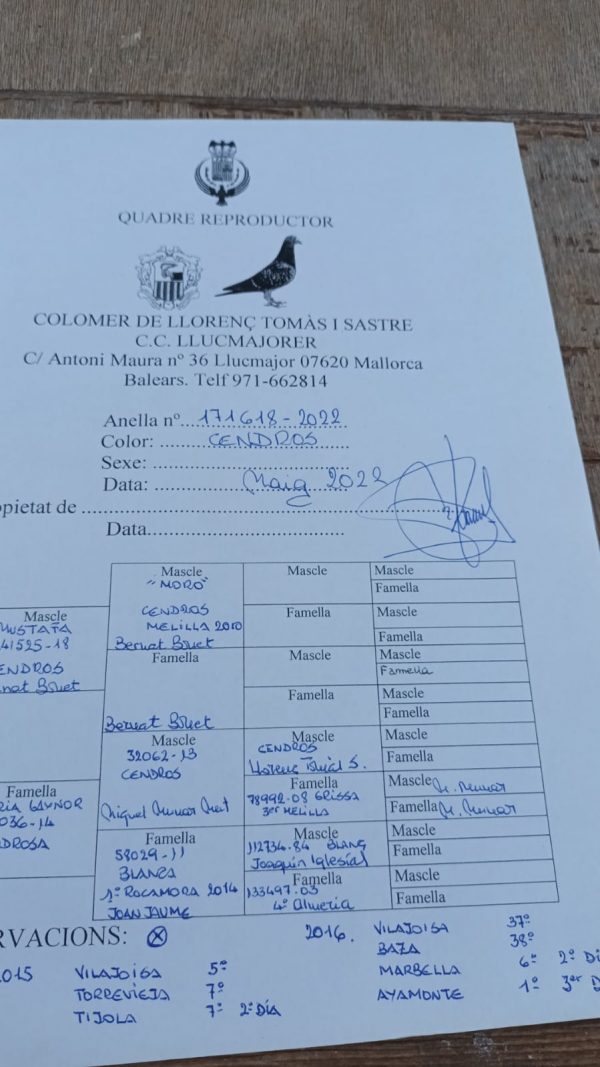 QUADRE REPRODUCTOR
COLOMER DE LLORENÇ TOMÀS I SASTRE
C.C. LLUCMAJORER
C/ Antoni Maura nº 36 Llucmajor 07620 Mallorca
Balears. Telf 971-662814
Anella nº...171618-2022
Color: CENDROS
Sexe:
Data: Maig 2022
opietat de
Data
Mascle
"MORO"
CENDROS
MELILLA 2010
Bernat Bruet
Mascle
Famella
Famella
Mascle
Famella
Mascle
Famella
Mascle
41525-18
ENDROS
Bruet
Famella
Bernat Bruet
Mascle
Famella
Mascle
Famella
Mascle
Famella
Famella
RIA GAYNOR
036-14
DROSA
Mascle
32062-13
CENDROS
Miquel
Mascle
CENDROS
Llorenç S.
Famella
78992.08 GRISSA
3er MELILLA
Mascle
Famella
Mascle
Famella
Famella
58029-11
BLANCA
1º ROCAMORA 2014
JOAN JAUME
Mascle
112734.84 BLANÇ
Joaquin Iglesias
Famella
133497.03
4º Almeria
Mascle
Famella
Mascle
Famella
RVACIONS:
2015 VILAJOISA 5º
TORREVIEJA 7º
TIJOLA 7º 2º DÍA
2016. VILAJOISA 37º
BAZA 38º
MARBELLA 6º 2º DÍ
AYAMONTE 1º 3er D